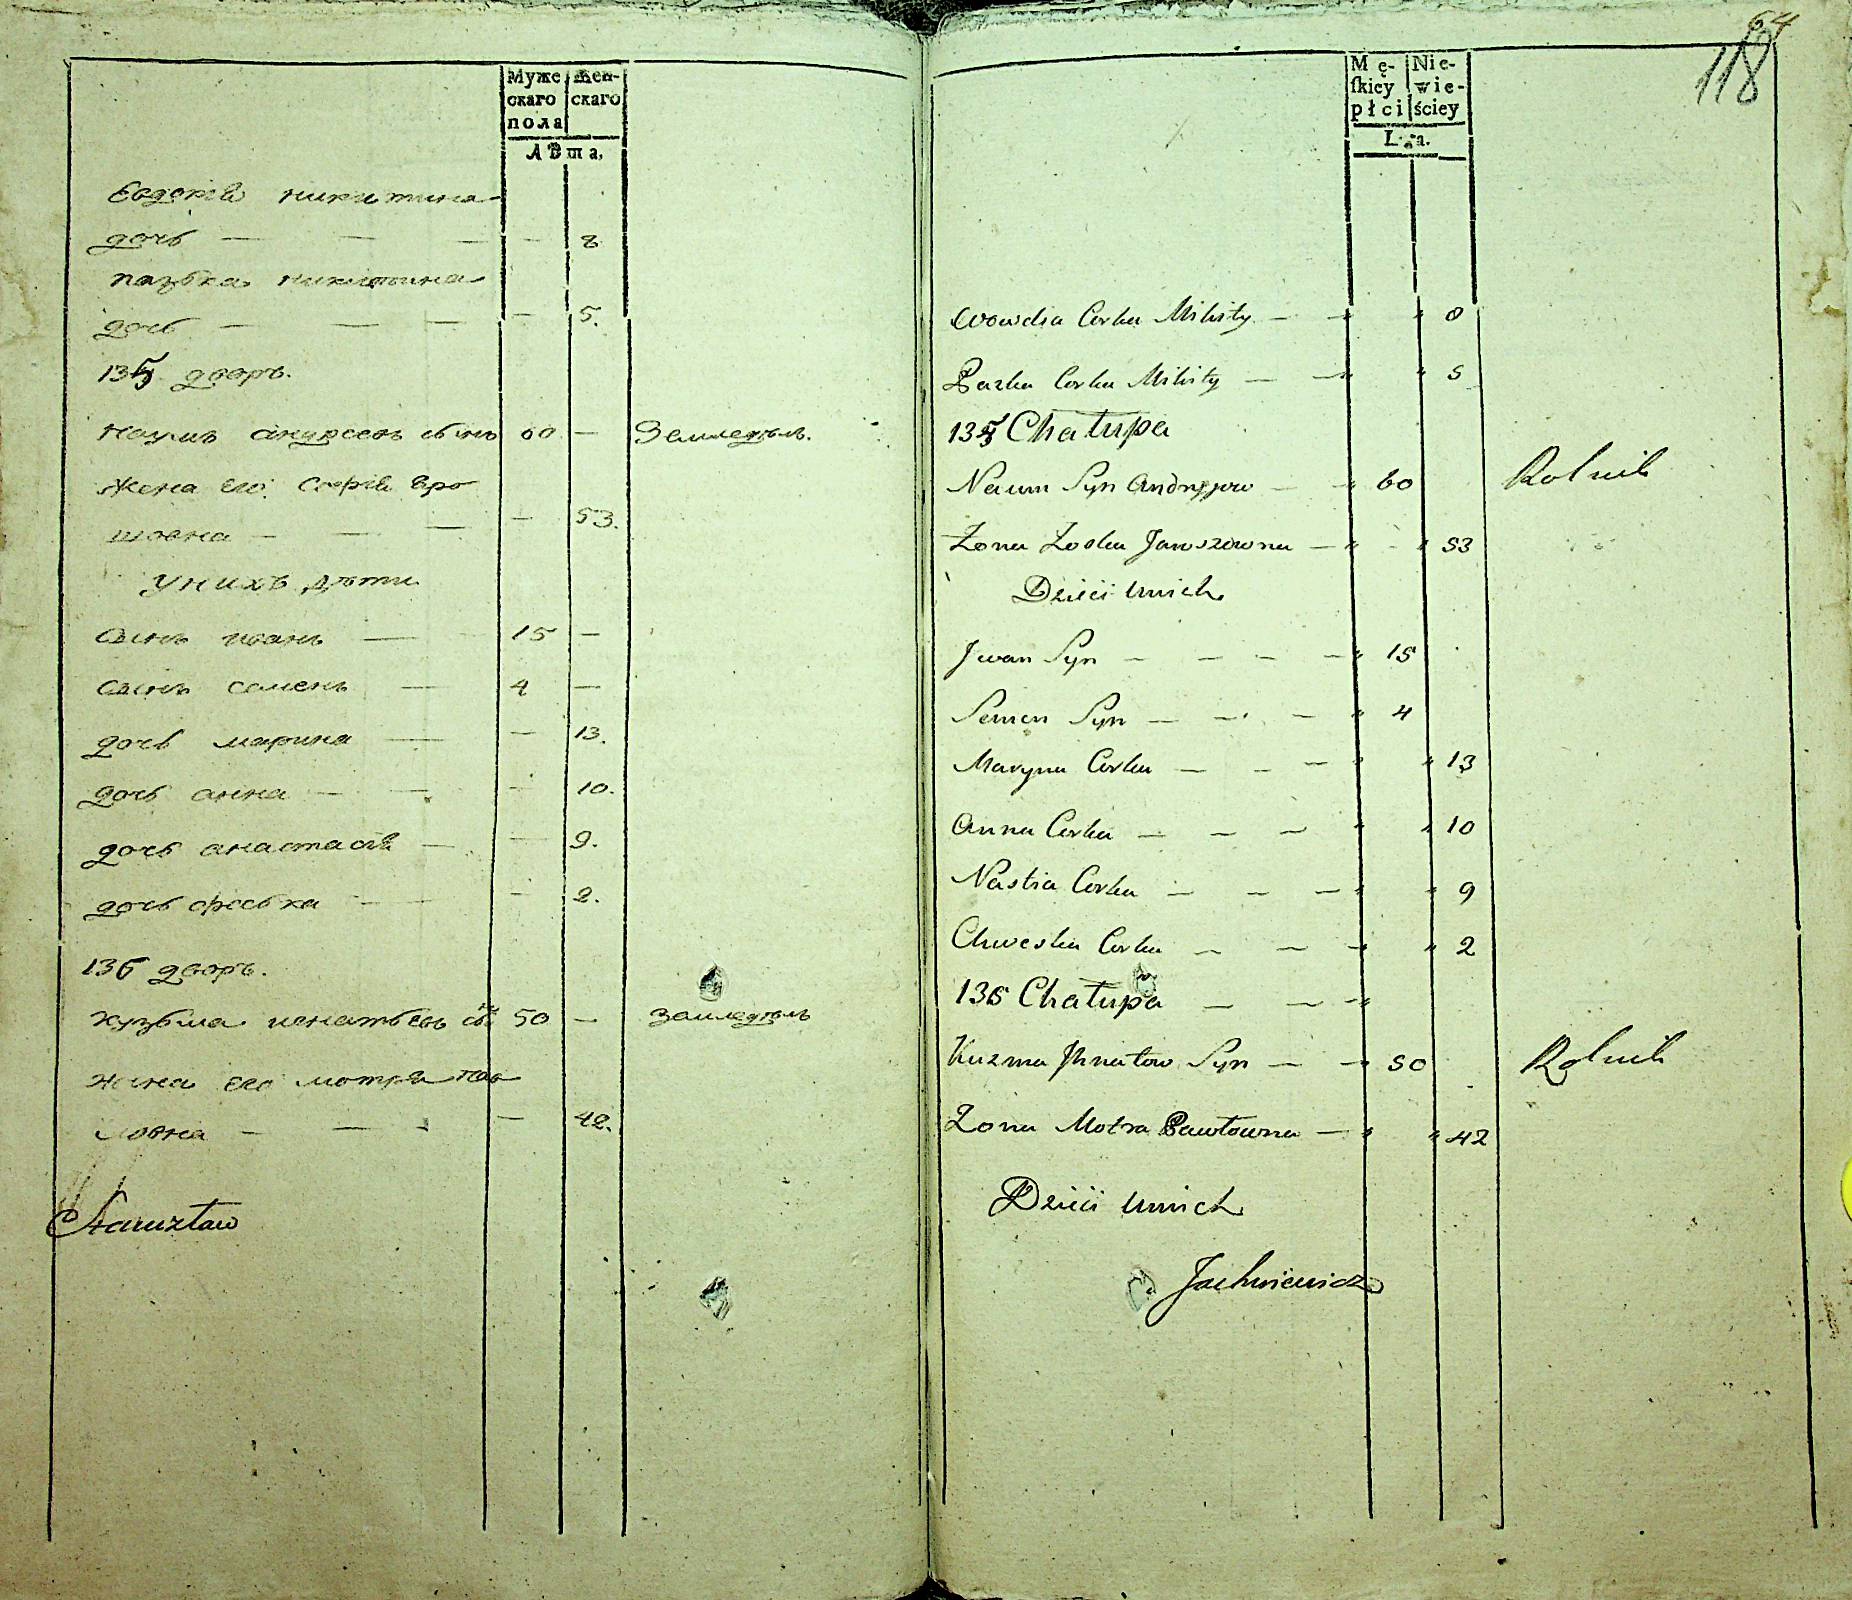 Муже Жен-
скаго скаго
пола
лѣта.
Евдокія никитина
дочь — — — — 8
пазька никитина
дочь — — — — 5.
135 дворъ.
Наумъ андреевъ сынъ 60 — Земледѣль.
жена его софія яро
шовна — — — — 53.
У нихъ дѣти
сынъ иванъ — 15 —
сынъ семенъ — 4 —
дочь марина — — 13.
дочь анна — — — 10.
дочь анастасія — — 9.
дочь феська — — — 2.
136 дворъ.
кузьма игнатьевъ сынъ 50 — земледѣль
жена его мотря пав
ловна — — — — 42.
Stanisław
64
118
Mę- Nie-
skiey wie-
płci ściey
Lata.
Wowdia Corka Mikity — — 8
Pazka Corka Mikity — — 5
135 Chałupa
Naum Syn Andryjow — — 60 Rolnik
Żona Zoska Jaroszowna — — 53
Dzieci unich
Jwan Syn — — — — 15
Semen Syn — — — 4
Maryna Corka — — — 13
Anna Corka — — — 10
Nastia Corka — — — 9
Chweska Corka — — — 2
136 Chałupa — — —
Kuzma Jhnatow Syn — — 50 Rolnik
Żona Motra Pawłowna — 42
Dzieci unich
Jachniewicz